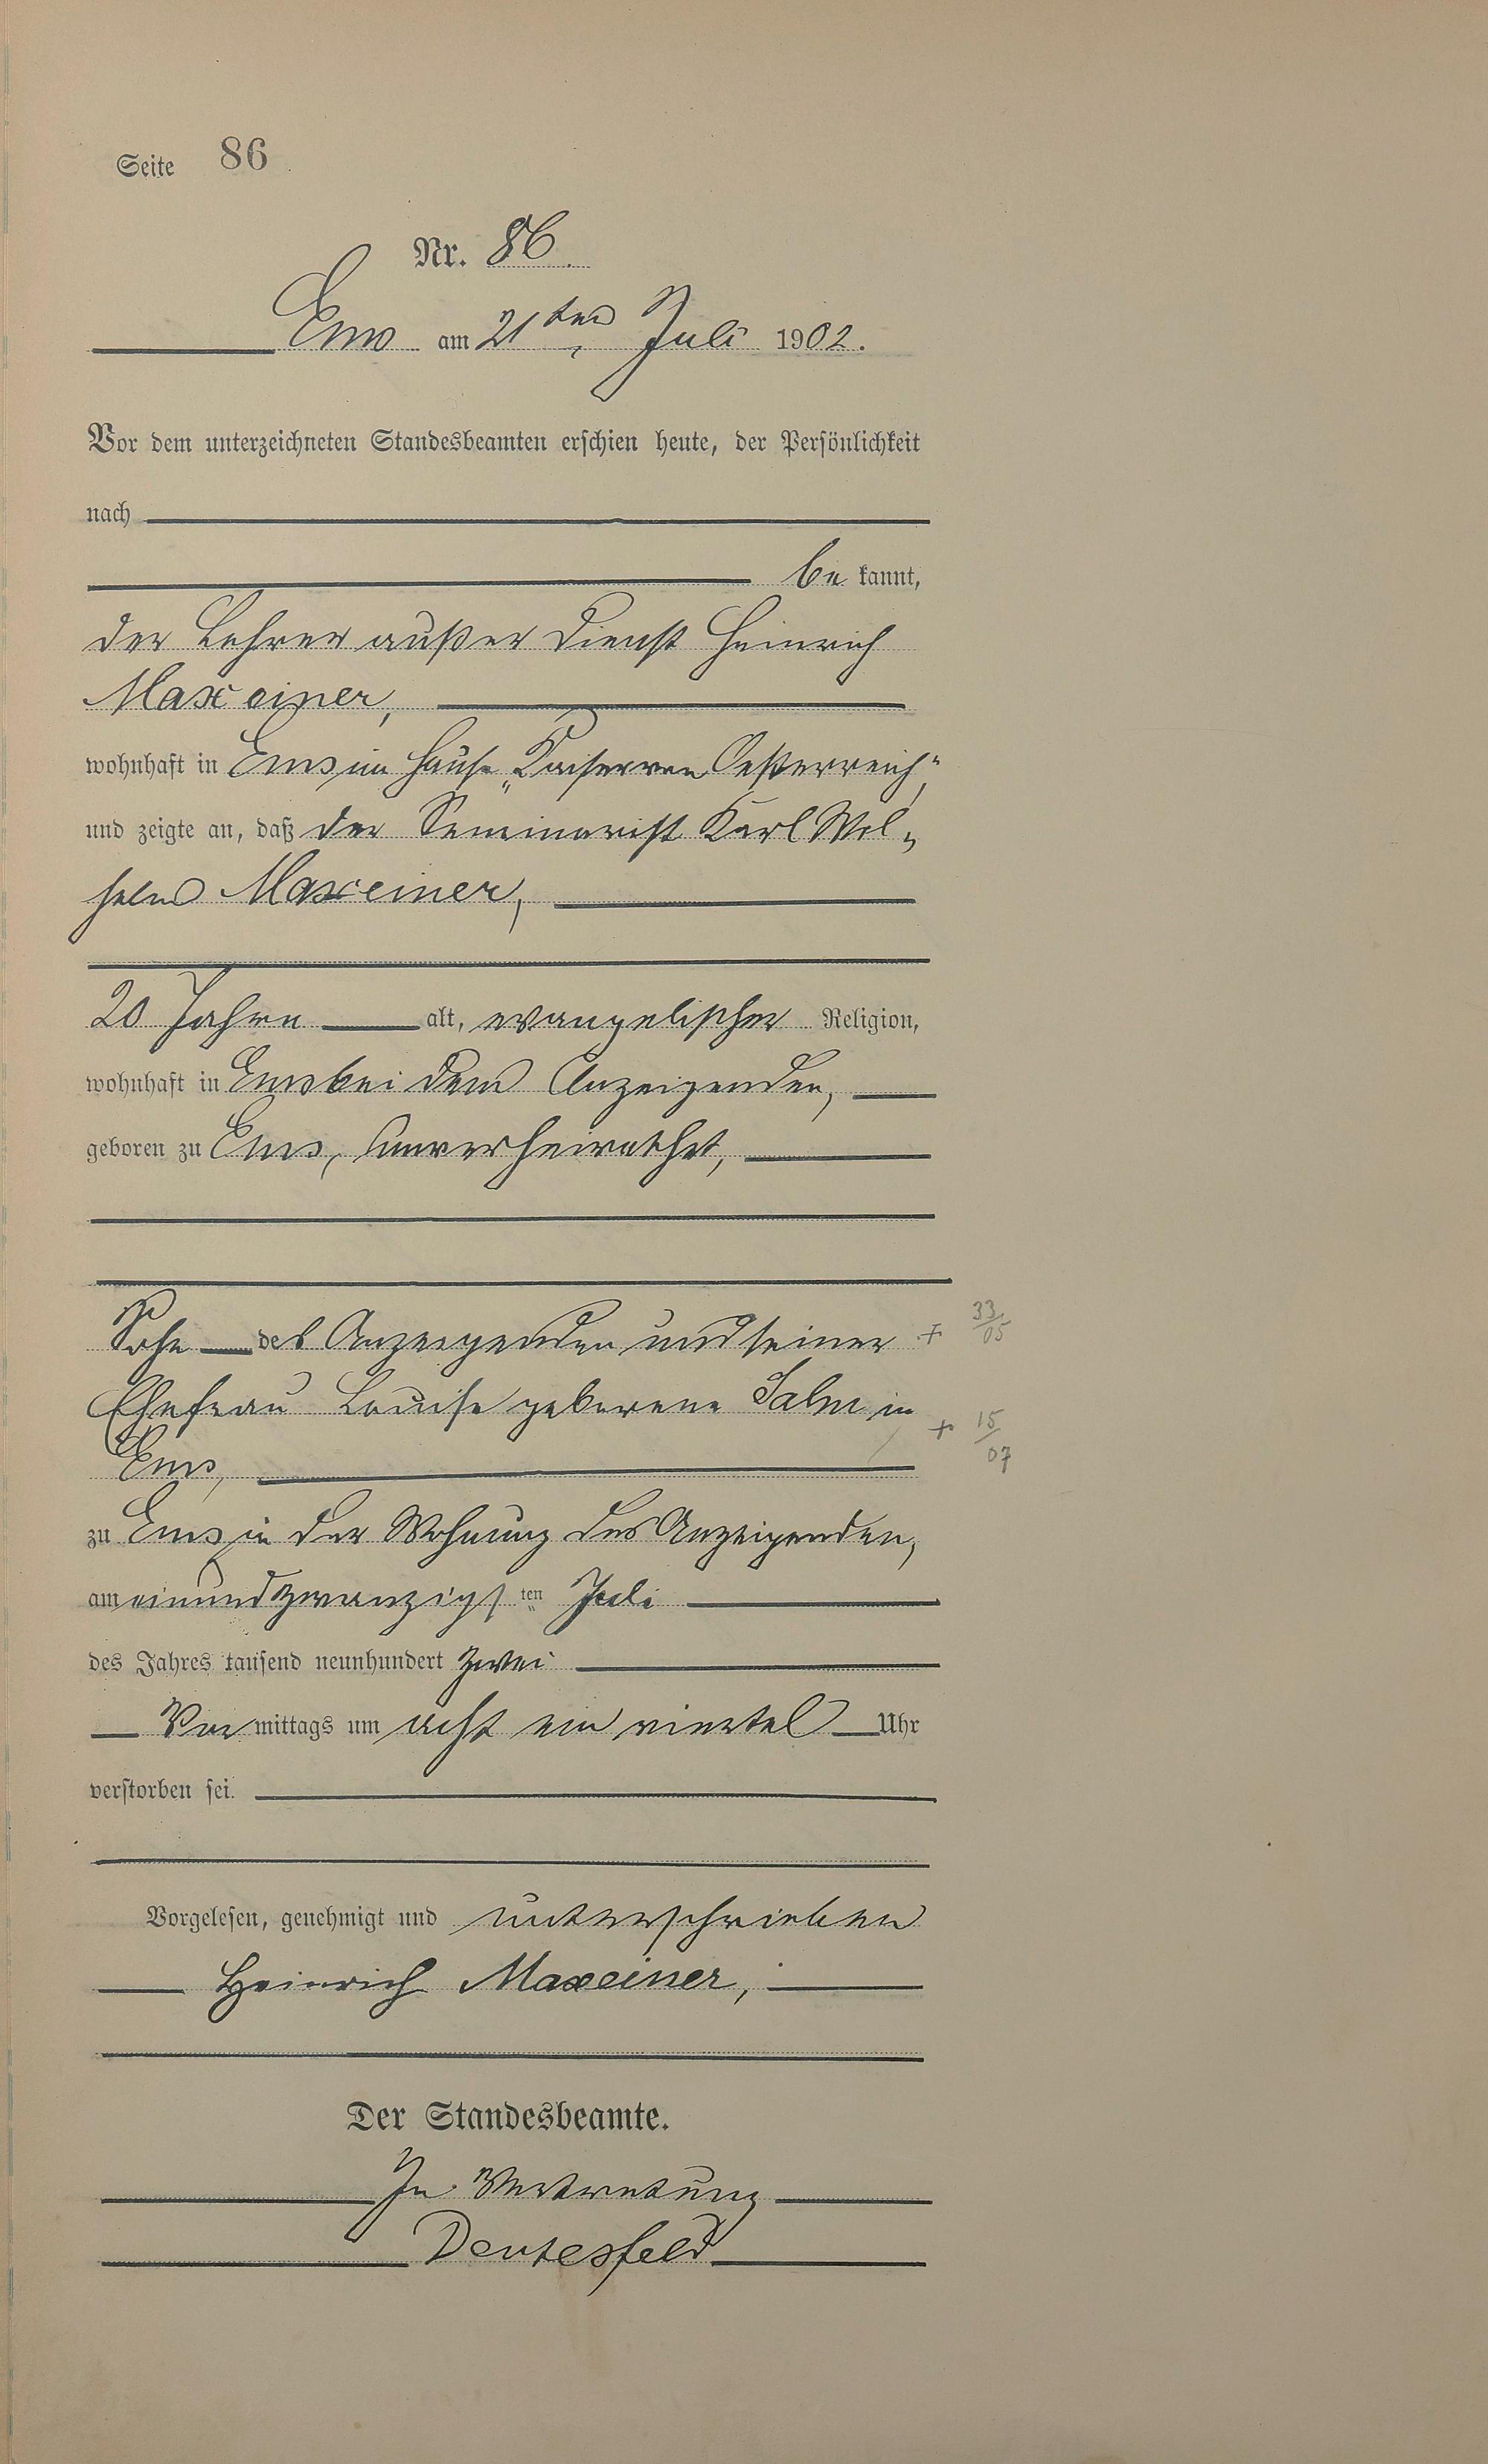 Seite 86
Nr. 86.
Ems am 21ten Juli 1902.
Vor dem unterzeichneten Standesbeamten erschien heute, der Persönlichkeit
nach
be kannt,
der Lehrer außer Dienst Heinrich
Maxeiner,
wohnhaft in Ems im Hause „Kaiser von Oesterreich",
und zeigte an, daß der Seminarist Karl Wil-
helm Maxeiner,
20 Jahre alt, evangelischer Religion,
wohnhaft in Ems bei dem Anzeigenden,
geboren zu Ems, unverheirathet,
Sohn des Anzeigenden und seiner + 33/05
Ehefrau Louise geborene Salm in + 15/07
Ems,
zu Ems in der Wohnung des Anzeigenden,
am einundzwanzigsten Juli
des Jahres tausend neunhundert zwei
Vor mittags um acht ein viertel Uhr
verstorben sei.
Vorgelesen, genehmigt und unterschrieben
Heinrich Maxeiner,
Der Standesbeamte.
In Vertretung
Deutesfeld